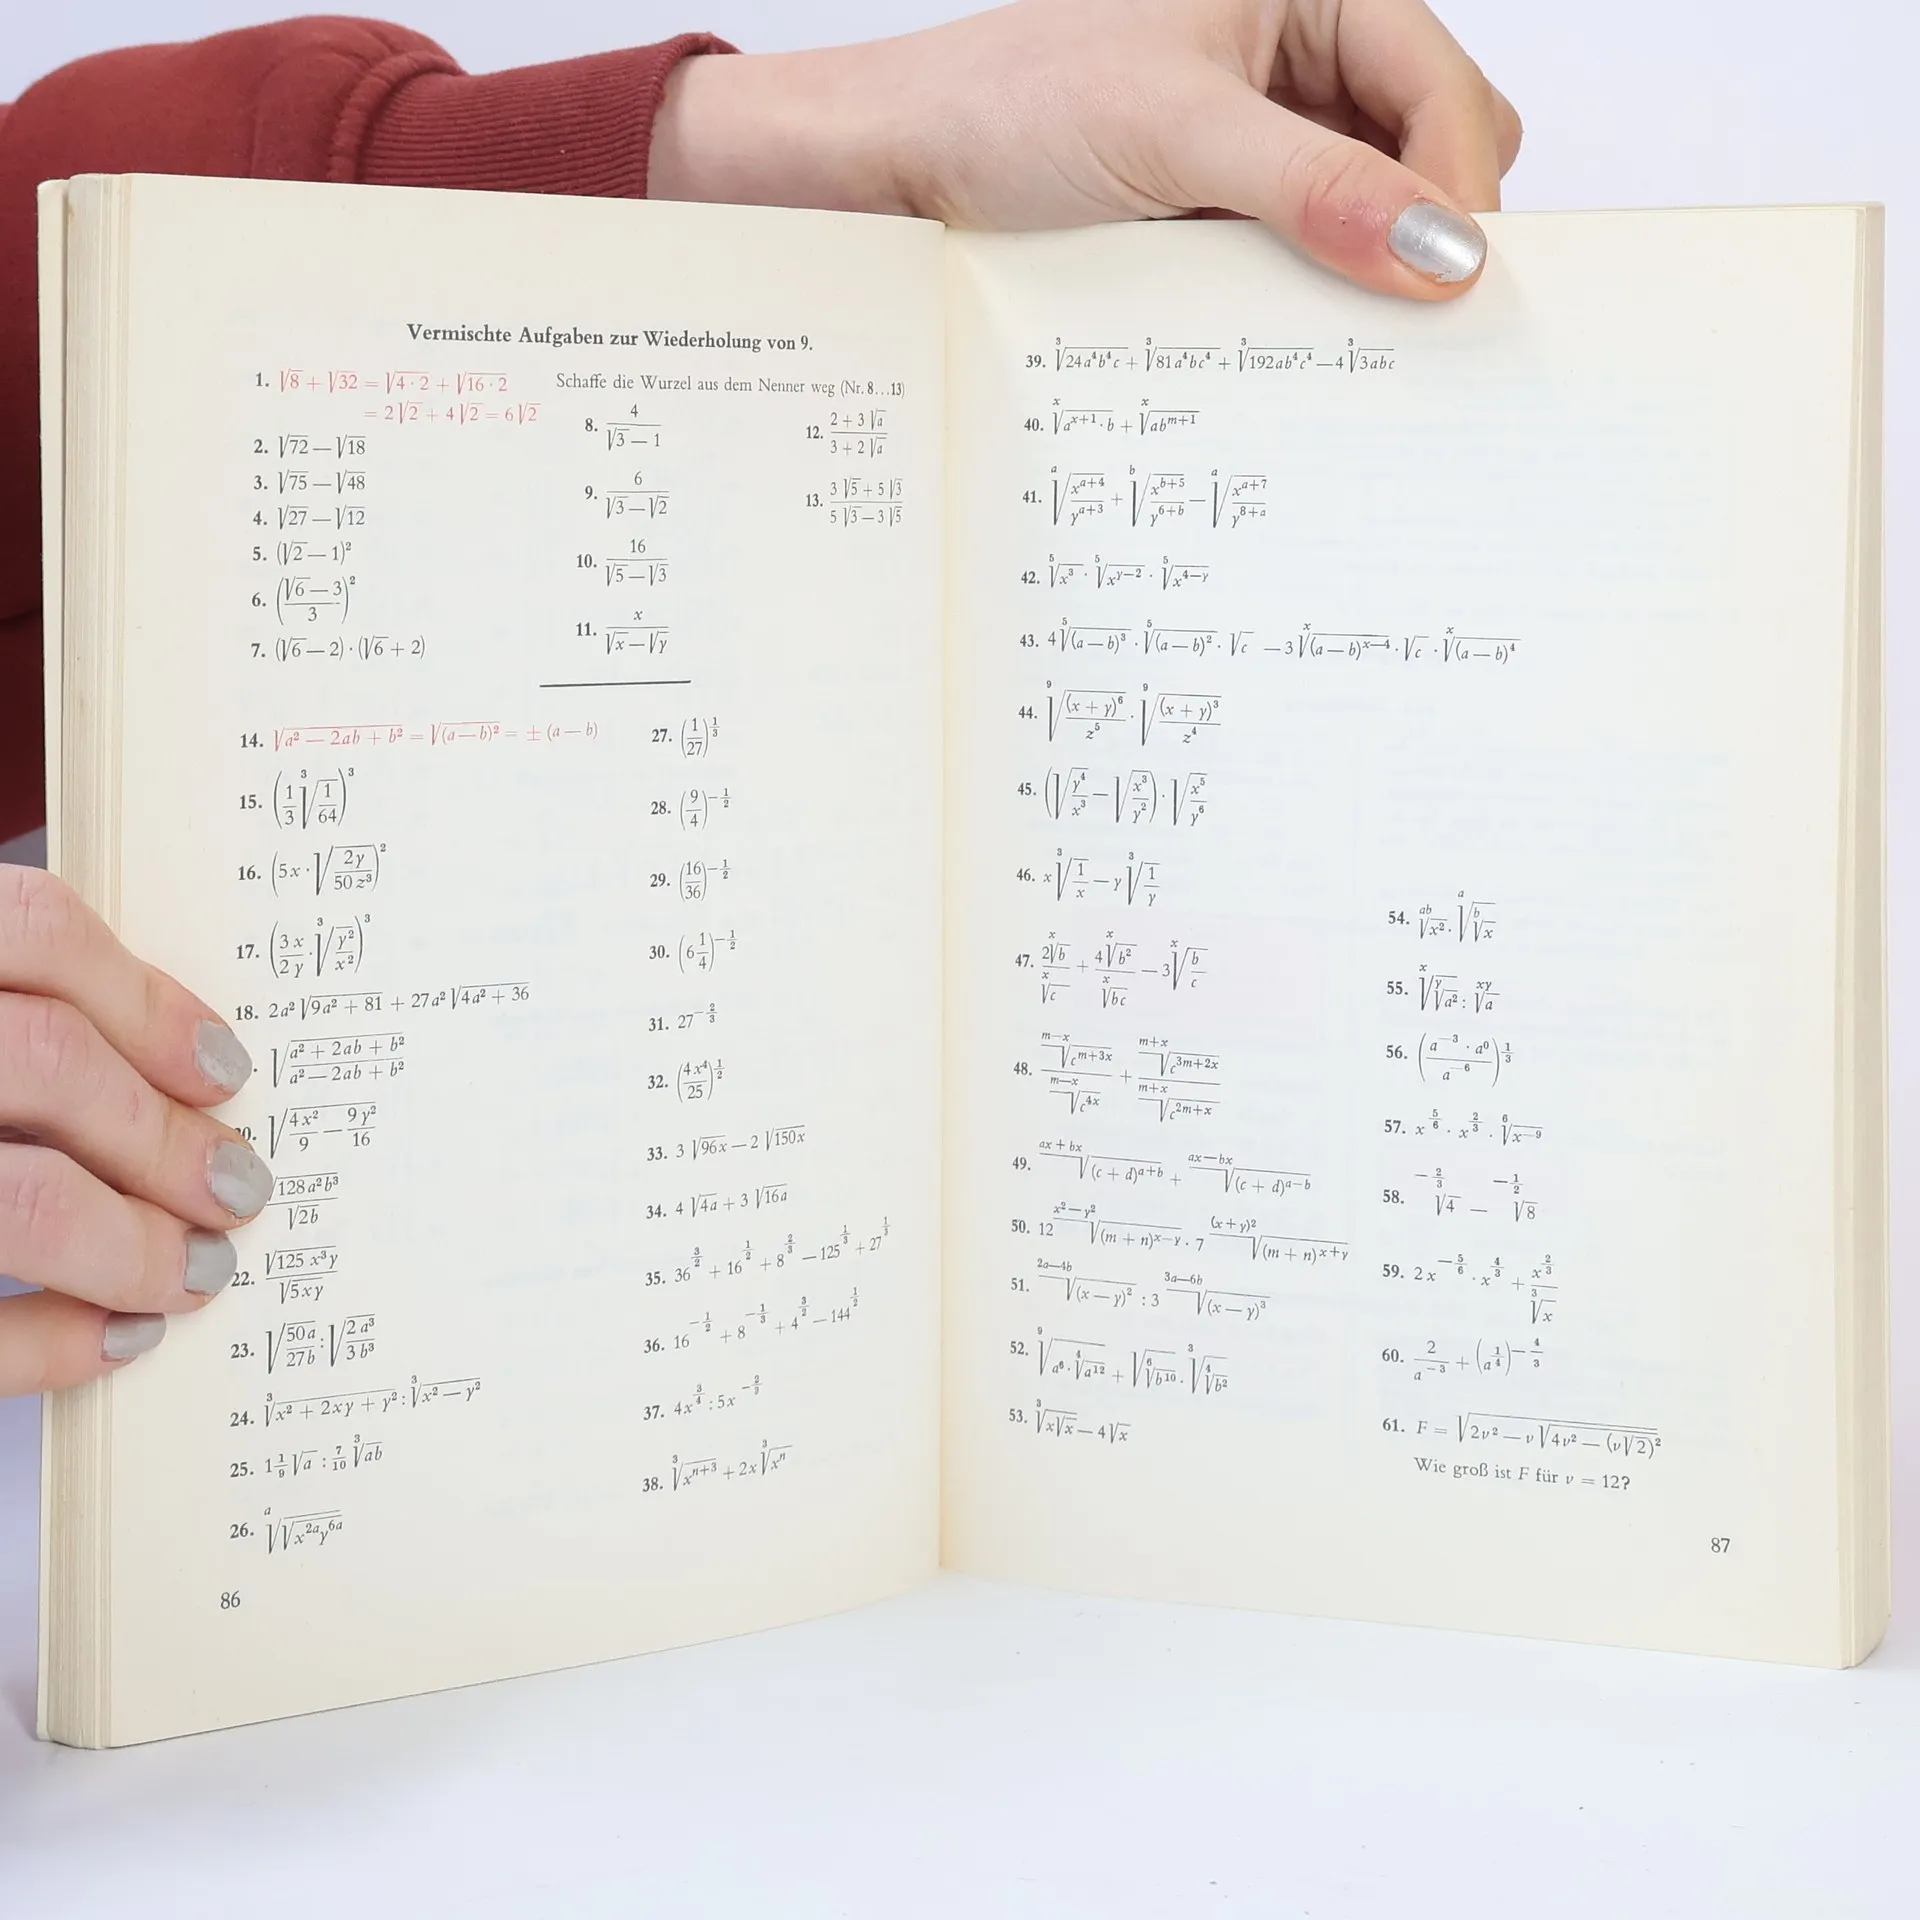 Vermischte Aufgaben zur Wiederholung von 9.
1. √8 + √32 = √(4 · 2) + √(16 · 2)
= 2√2 + 4√2 = 6√2
2. √72 — √18
3. √75 — √48
4. √27 — √12
5. (√2 — 1)²
6. ((√6 — 3)/3)²
7. (√6 — 2) · (√6 + 2)
Schaffe die Wurzel aus dem Nenner weg (Nr. 8...13)
8. 4/(√3 — 1)
9. 6/(√3 — √2)
10. 16/(√5 — √3)
11. x/(√x — √y)
12. (2 + 3√a)/(3 + 2√a)
13. (3√5 + 5√3)/(5√3 — 3√5)
14. √(a² — 2ab + b²) = √((a — b)²) = ± (a — b)
15. (1/3 ∛(1/64))³
16. (5x · √(2y/(50z³)))²
17. (3x/(2y) · ∛(y²/x²))³
18. 2a² √(9a² + 81) + 27a² √(4a² + 36)
. √((a² + 2ab + b²)/(a² — 2ab + b²))
0. √(4x²/9 — 9y²/16)
√(128a²b³)/√(2b)
22. √(125x³y)/√(5xy)
23. √(50a/(27b)) : √(2a³/(3b³))
24. ∛(x² + 2xy + y²) : ∛(x² — y²)
25. 1 1/9 √a : 7/10 ∛(ab)
26. ᵃ√(√(x^(2a) y^(6a)))
27. (1/27)^(1/3)
28. (9/4)^(—1/2)
29. (16/36)^(—1/2)
30. (6 1/4)^(—1/2)
31. 27^(—2/3)
32. (4x⁴/25)^(1/2)
33. 3 √(96x) — 2 √(150x)
34. 4 √(4a) + 3 √(16a)
35. 36^(3/2) + 16^(1/2) + 8^(2/3) — 125^(1/3) + 27^(1/3)
36. 16^(—1/2) + 8^(—1/3) + 4^(3/2) — 144^(1/2)
37. 4x^(3/4) : 5x
38. ∛(x^(n+3)) + 2x ∛(xⁿ)
86
39. ∛(24a⁴b⁴c) + ∛(81a⁴bc⁴) + ∛(192ab⁴c⁴) — 4 ∛(3abc)
40. ˣ√(a^(x+1) · b) + ˣ√(ab^(m+1))
41. ᵃ√(x^(a+4)/y^(a+3)) + ᵇ√(x^(b+5)/y^(6+b)) — ᵃ√(x^(a+7)/y^(8+a))
42. ⁵√(x³) · ⁵√(x^(y—2)) · ⁵√(x^(4—y))
43. 4 ⁵√((a — b)³) · ⁵√((a — b)²) · √c — 3 ˣ√((a — b)^(x—4)) · √c · ˣ√((a — b)⁴)
44. ⁹√((x + y)⁶/z⁵) · ⁹√((x + y)³/z⁴)
45. (√(y⁴/x³) — √(x³/y²)) · √(x⁵/y⁶)
46. x ∛(1/x) — y ∛(1/y)
47. 2 ˣ√b / ˣ√c + 4 ˣ√(b²) / ˣ√(bc) — 3 ˣ√(b/c)
48. ᵐ⁻ˣ√(c^(m+3x)) / ᵐ⁻ˣ√(c^(4x)) + ᵐ⁺ˣ√(c^(3m+2x)) / ᵐ⁺ˣ√(c^(2m+x))
49. ᵃˣ⁺ᵇˣ√((c + d)^(a+b)) + ᵃˣ⁻ᵇˣ√((c + d)^(a—b))
50. 12 ^(x²—y²)√((m + n)^(x—y)) · 7 ^((x+y)²)√((m + n)^(x+y))
51. ^(2a—4b)√((x — y)²) : 3 ^(3a—6b)√((x — y)³)
52. ⁹√(a⁶ · ⁴√(a¹²)) + √(⁶√(b¹⁰)) · ∛(⁴√(b²))
53. ∛(x√x) — 4√x
54. ᵃᵇ√(x²) · ᵃ√(ᵇ√x)
55. ˣ√(ʸ√(a²)) : ˣʸ√a
56. ((a^(—3) · a⁰)/a^(—6))^(1/3)
57. x^(5/6) · x^(2/3) · ⁶√(x^(—9))
58. ^(—2/3)√4 — ^(—1/2)√8
59. 2x^(—5/6) · x^(4/3) + x^(2/3)/∛x
60. 2/a^(—3) + (a^(1/4))^(—4/3)
61. F = √(2v² — v√(4v² — (v√2)²))
Wie groß ist F für v = 12?
87